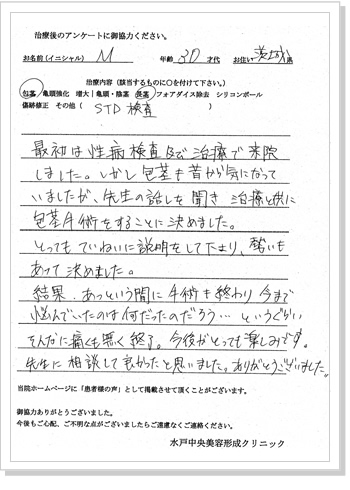 治療後のアンケートに御協力ください。
お名前(イニシャル) M 年齢 30代 お住い 茨城県
治療内容(該当するものに○を付けて下さい。)
包茎 亀頭強化 増大|亀頭・陰茎 長茎 フォアダイス除去 シリコンボール
傷跡修正 その他( STD 検査 )
最初は性病検査及び治療で来院
しました。しかし包茎も昔から気になって
いましたが、先生の話しを聞き 治療と供に
包茎手術をすることに決めました。
とってもていねいに説明をして下さり、勢いも
あって決めました。
結果、あっという間に手術も終わり今まで
悩んでいたのは何だったのだろう…というぐらい
そんなに痛くも無く終了。今後がとっても楽しみです。
先生に相談して良かったと思いました。ありがとうございました。
当院ホームページに「患者様の声」として掲載させて頂くことがございます。
御協力ありがとうございました。
今後もご心配、ご不明な点がございましたらご遠慮なくご連絡ください。
水戸中央美容形成クリニック